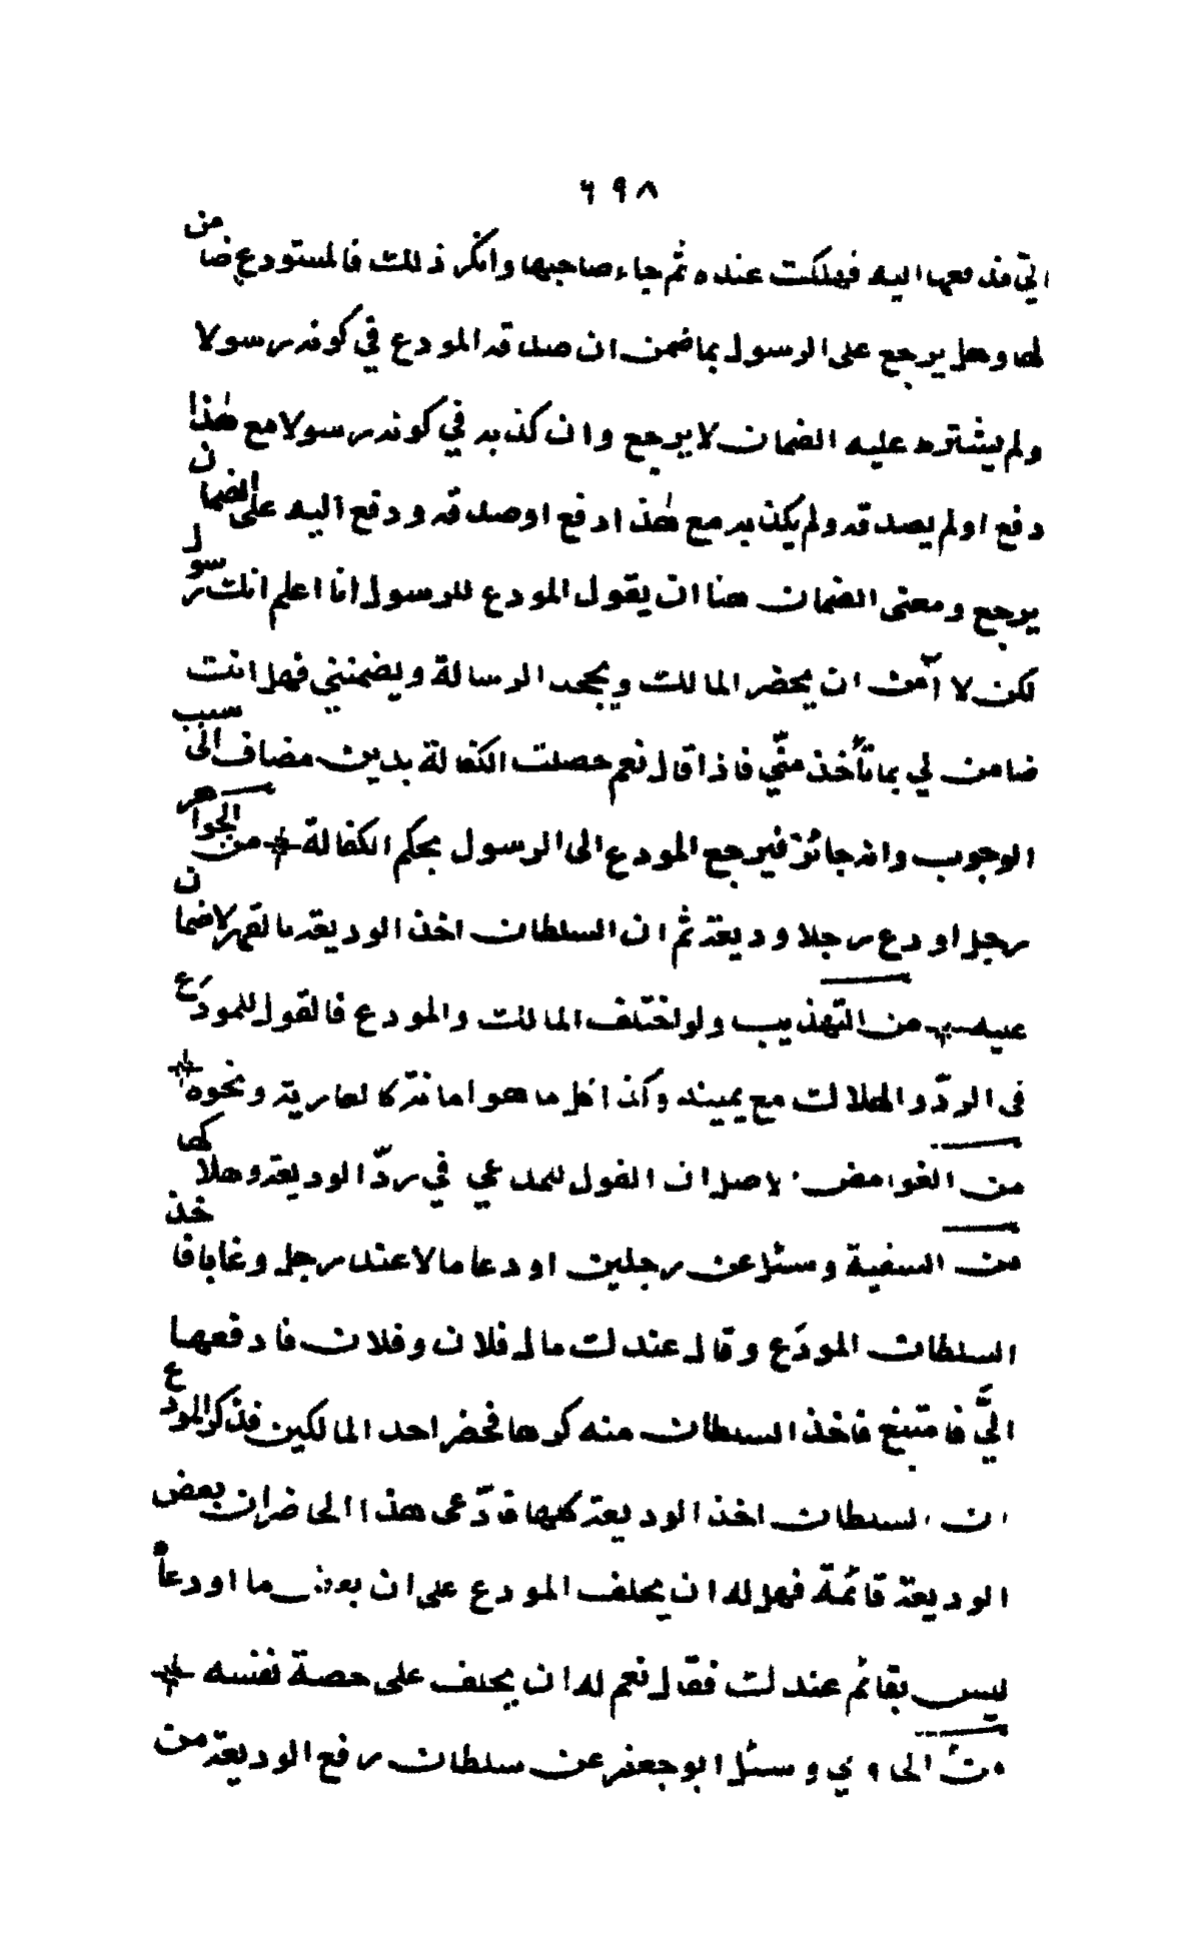 ٦٩٨
اليّ فدفعها اليه فهلكت عنده ثم جاء صاحبها وانكر ذلك فالمستودع ضامن
لها وهل يرجع على الرسول بما ضمن ان صدقه المودع في كونه رسولا
ولم يشترط عليه الضمان لا يرجع وان كذبه في كونه رسولا مع هٰذا
دفع اولم يصدقه ولم يكذبه مع هٰذا دفع اوصدقه ودفع اليه على الضمان
يرجع ومعنى الضمان هنا ان يقول المودع للرسول انا اعلم انك رسول
لكن لا آمن ان يحضر المالك ويجحد الرسالة ويضمنني فهل انت
ضامن لي بما تأخذ منّي فاذا قال نعم حصلت الكفالة بدين مضاف الى سبب
الوجوب وانه جائز فيرجع المودع الى الرسول بحكم الكفالة من الجواهر
رجل اودع رجلا وديعة ثم ان السلطان اخذ الوديعة بالقهر لا ضمان
عليه من التهذيب ولو اختلف المالك والمودع فالقول للمودَع
في الردّ والهلاك مع يمينه وكذا كل ما هو امانة كالعارية ونحوه
من الغوامض لاصل ان القول للمدعي في ردّ الوديعة وهلاكها
من السفية وسئل عن رجلين اودعا مالا عند رجل وغابا فاخذ
السلطان المودَع وقال عندك مال فلان وفلان فادفعها
اليَّ فامتنع فاخذ السلطان منه كرها فحضر احد المالكين فذكر المودع
ان السلطان اخذ الوديعة كلها فادّعى هذا الحاضر ان بعض
الوديعة قائمة فهل له ان يحلف المودع على ان بعض ما اودعاه
ليس بقائم عندك فقال نعم له ان يحلف على حصة نفسه
وسئل ابو جعفر عن سلطان رفع الوديعة من